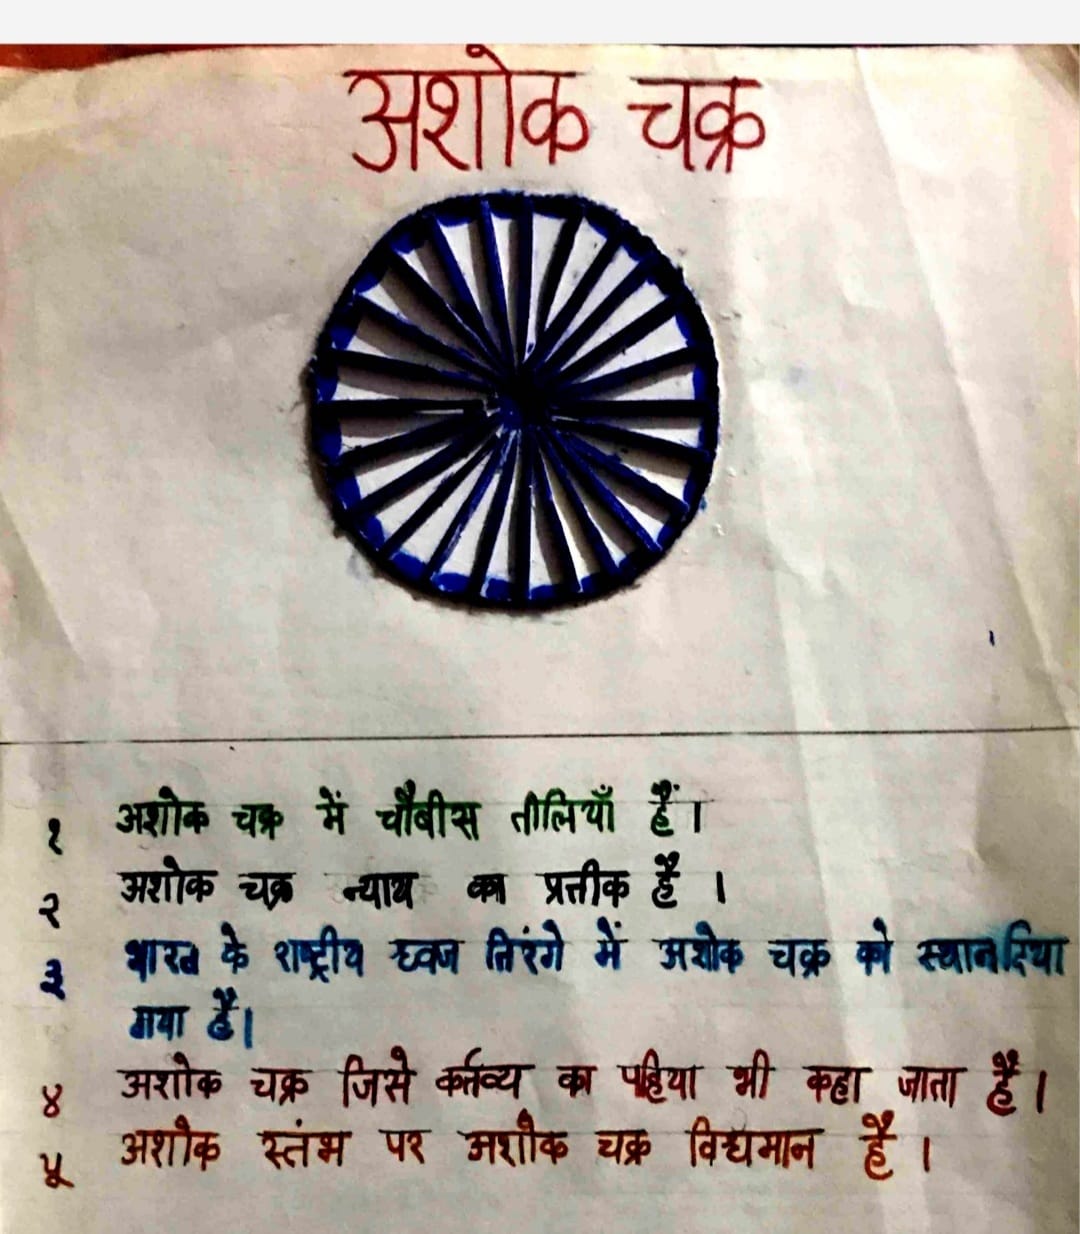 अशोक चक्र
१ अशोक चक्र में चौबीस तीलियाँ हैं।
२ अशोक चक्र न्याय का प्रतीक है ।
३ भारत के राष्ट्रीय ध्वज तिरंगे में अशोक चक्र को स्थान दिया
गया है।
४ अशोक चक्र जिसे कर्तव्य का पहिया भी कहा जाता है ।
५ अशोक स्तंभ पर अशोक चक्र विद्यमान है ।